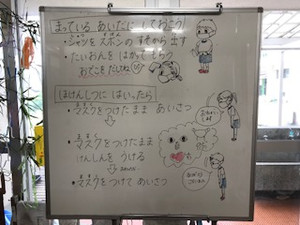 まっている あいだに しておこう
・シャツを ズボンの すそから 出す
・たいおんを はかって もらう
おでこを だしてね
ほけんしつに はいったら
・マスクを つけたまま あいさつ
・マスクを つけたまま
けんしんを うける
・マスクを つけて あいさつ